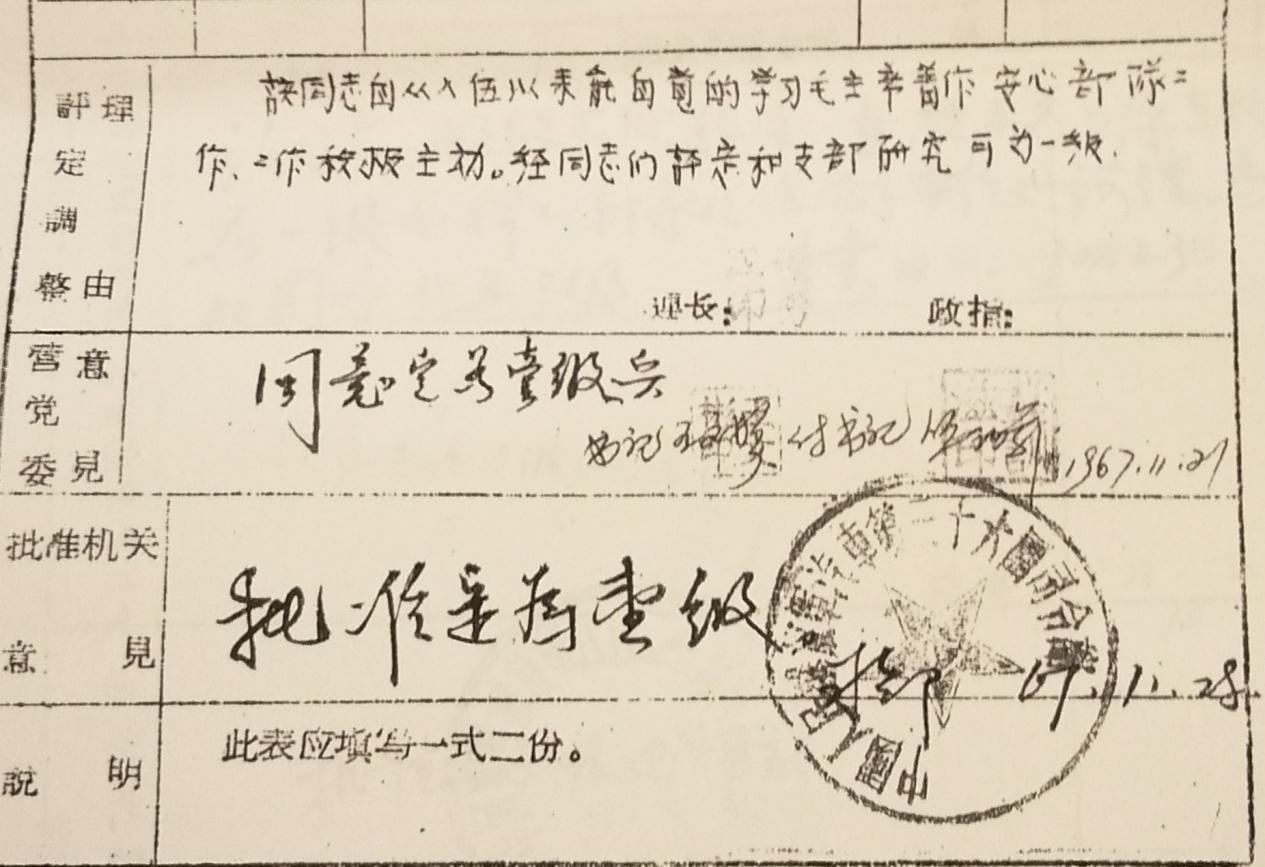 評定調整理由
該同志自从入伍以来能自覚的学习毛主席著作安心部隊工
作、工作积极主动。经同志们評定和支部研究可为一级.
連长: 政指:
营党委意見
同意定为壹级兵
书记 付书记 1967.11.21
批准机关意見
批准定为壹级
67.11.28.
中國人民解放軍汽車第二十六團司令部
説明
此表应填写一式二份。